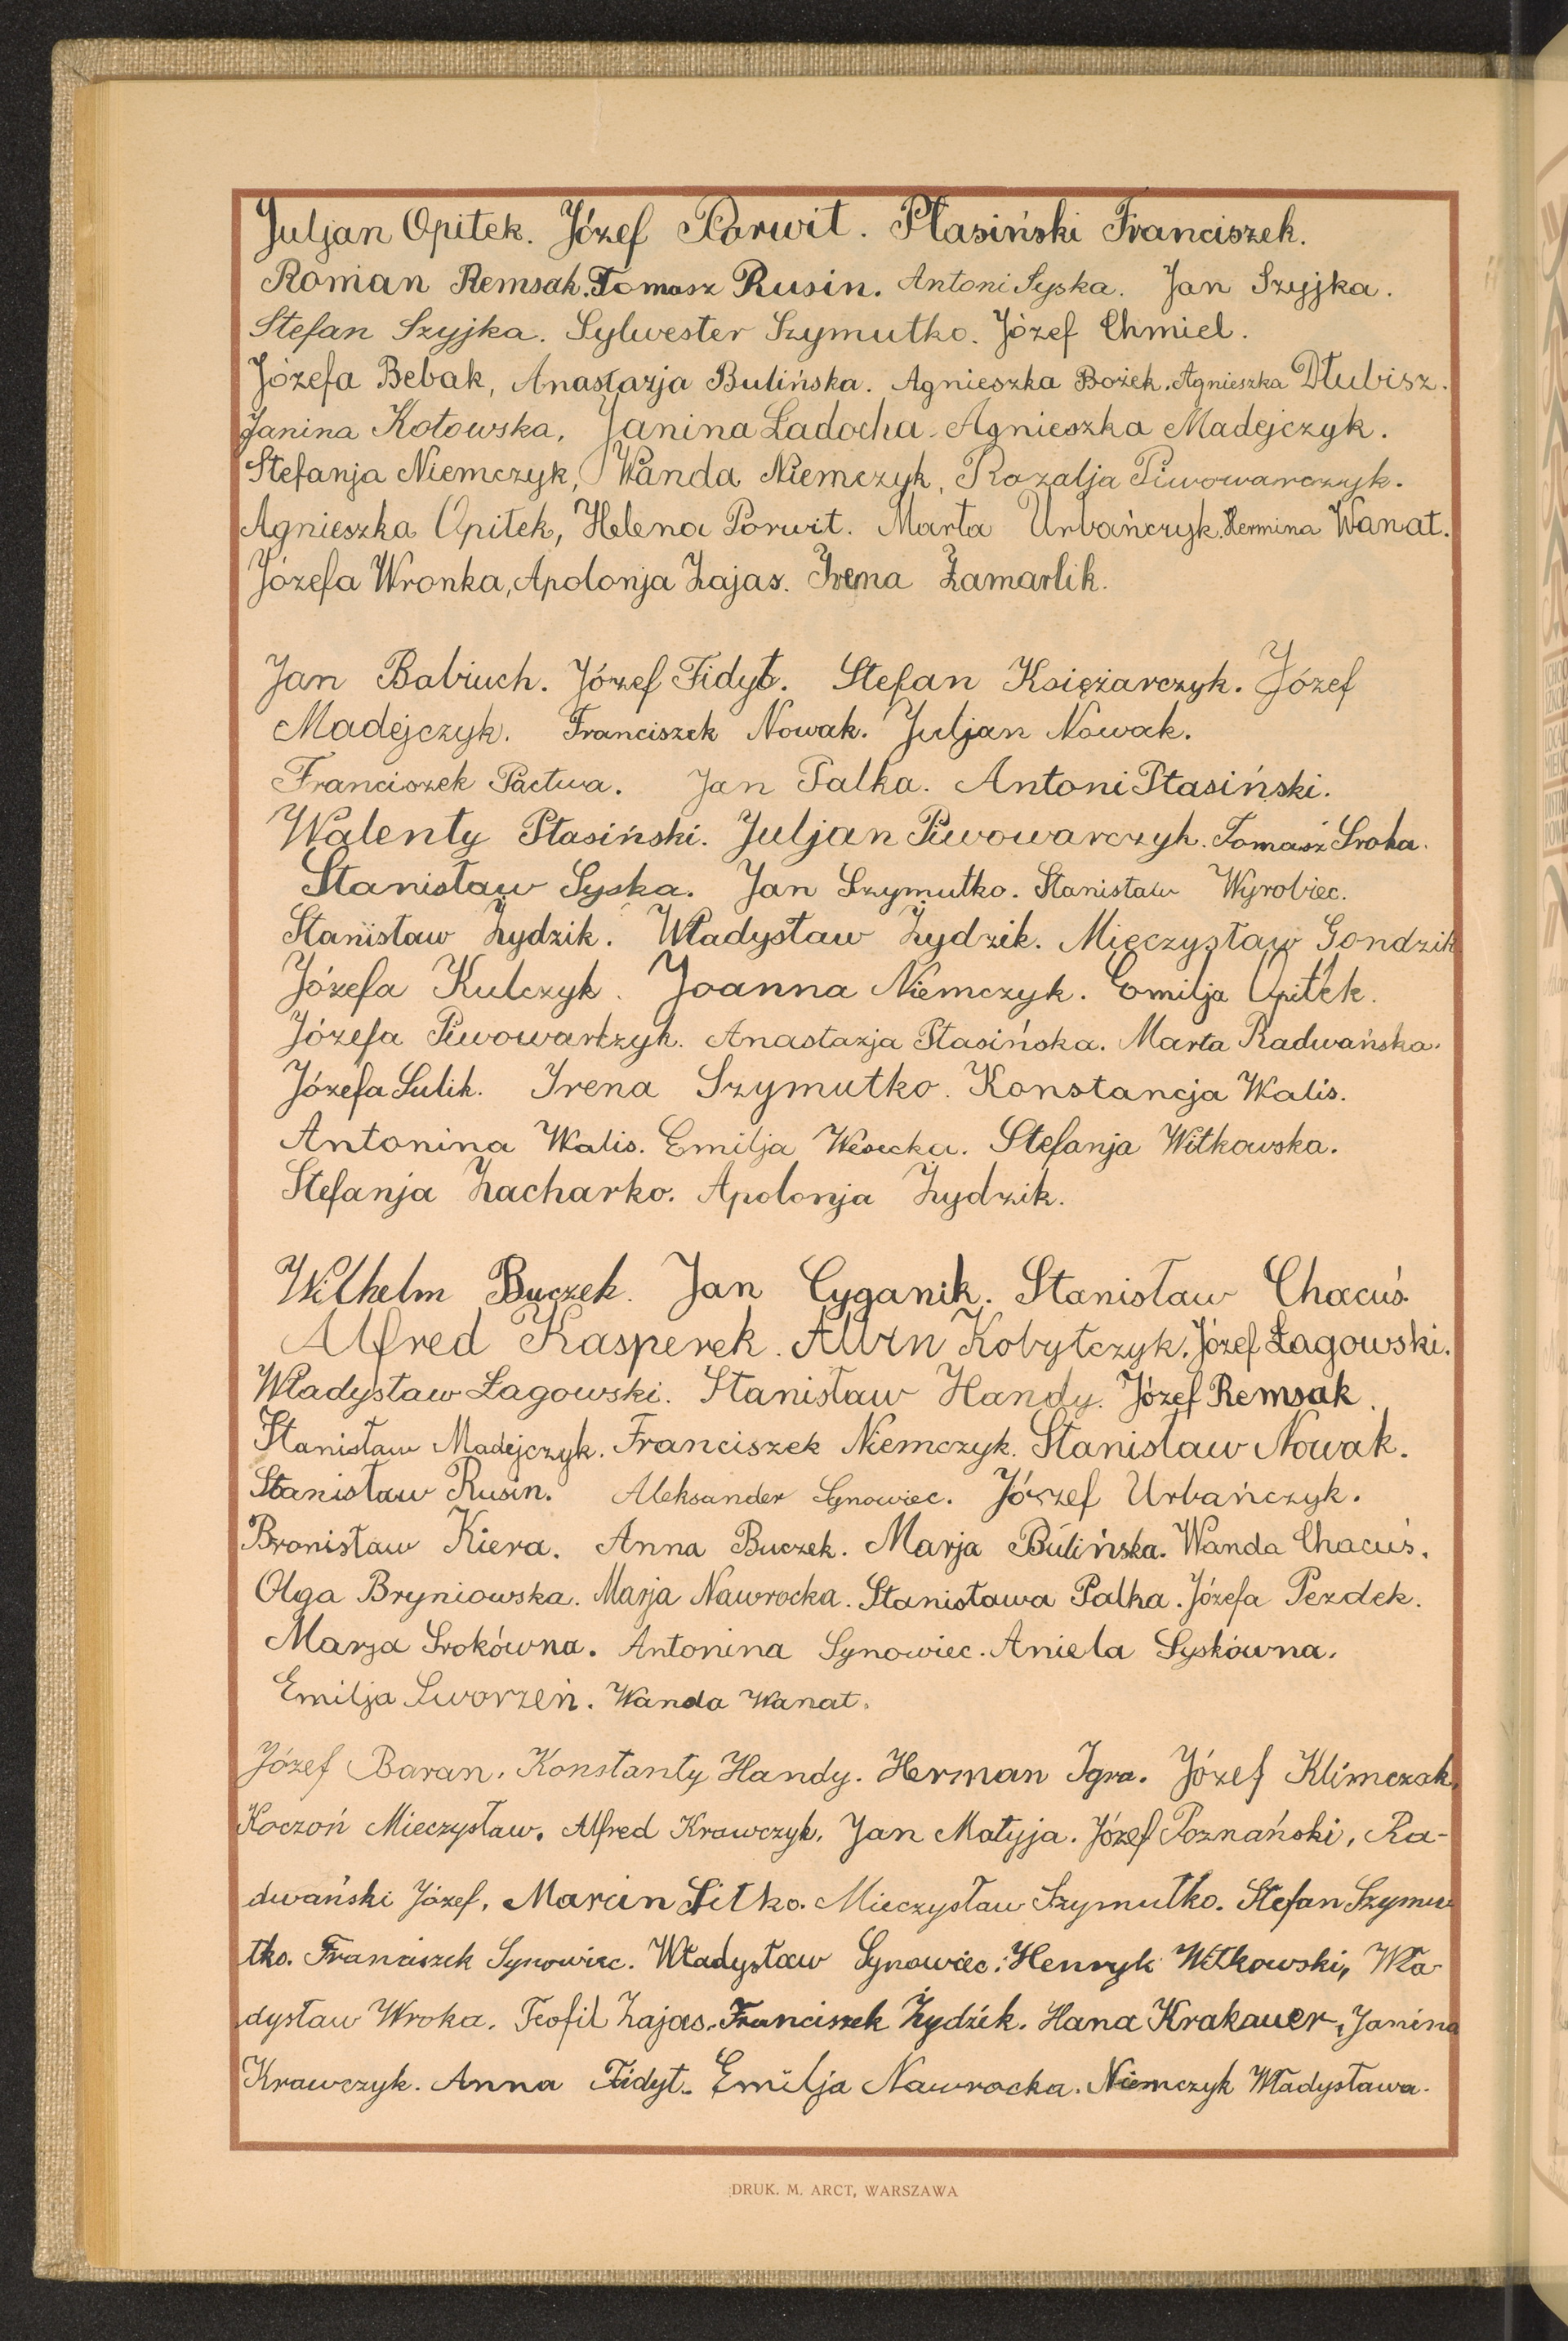 Juljan Opitek. Józef Porwit. Ptasiński Franciszek.
Roman Remsak. Tomasz Rusin. Antoni Syska. Jan Szyjka.
Stefan Szyjka. Sylwester Szymutko. Józef Chmiel.
Józefa Bebak, Anastazja Bulińska. Agnieszka Bożek. Agnieszka Dłubisz.
Janina Kotowska, Janina Ladocha. Agnieszka Madejczyk.
Stefanja Niemczyk, Wanda Niemczyk, Rozalja Piwowarczyk.
Agnieszka Opitek, Helena Porwit. Marta Urbańczyk. Hermina Wanat.
Józefa Wronka, Apolonja Zając. Irena Zamarlik.
Jan Babiuch. Józef Fidyt. Stefan Księżarczyk. Józef
Madejczyk. Franciszek Nowak. Juljan Nowak.
Franciszek Pactwa. Jan Palka. Antoni Ptasiński.
Walenty Ptasiński. Juljan Piwowarczyk. Tomasz Sroka.
Stanisław Syska. Jan Szymutko. Stanisław Wyrobiec.
Stanisław Żydzik. Władysław Żydzik. Mieczysław Gondzik
Józefa Kulczyk. Joanna Niemczyk. Emilja Opitek.
Józefa Piwowarczyk. Anastazja Ptasińska. Marta Radwańska.
Józefa Sulik. Irena Szymutko. Konstancja Walis.
Antonina Walis. Emilja Wesecka. Stefanja Witkowska.
Stefanja Zacharko. Apolonja Żydzik.
Wilhelm Buczek. Jan Cyganik. Stanisław Chacuś.
Alfred Kasperek. Alwin Kobytczyk. Józef Łagowski.
Władysław Łagowski. Stanisław Handy. Józef Remsak.
Stanisław Madejczyk. Franciszek Niemczyk. Stanisław Nowak.
Stanisław Rusin. Aleksander Synowiec. Józef Urbańczyk.
Bronisław Kiera. Anna Buczek. Marja Bulińska. Wanda Chacuś.
Olga Bryniowska. Marja Nawrocka. Stanisława Palka. Józefa Pezdek.
Marja Srokówna. Antonina Synowiec. Aniela Syskówna.
Emilja Sworzeń. Wanda Wanat.
Józef Baran. Konstanty Handy. Herman Igra. Józef Klimczak.
Koczoń Mieczysław. Alfred Krawczyk. Jan Matyja. Józef Poznański, Ra-
dwański Józef. Marcin Sitko. Mieczysław Szymutko. Stefan Szymu
tko. Franciszek Synowiec. Władysław Synowiec. Henryk Witkowski, Wła
dysław Wroka. Teofil Zając. Franciszek Żydzik. Hana Krakauer, Janina
Krawczyk. Anna Fidyt. Emilja Nawrocka. Niemczyk Władysława.
DRUK. M. ARCT, WARSZAWA